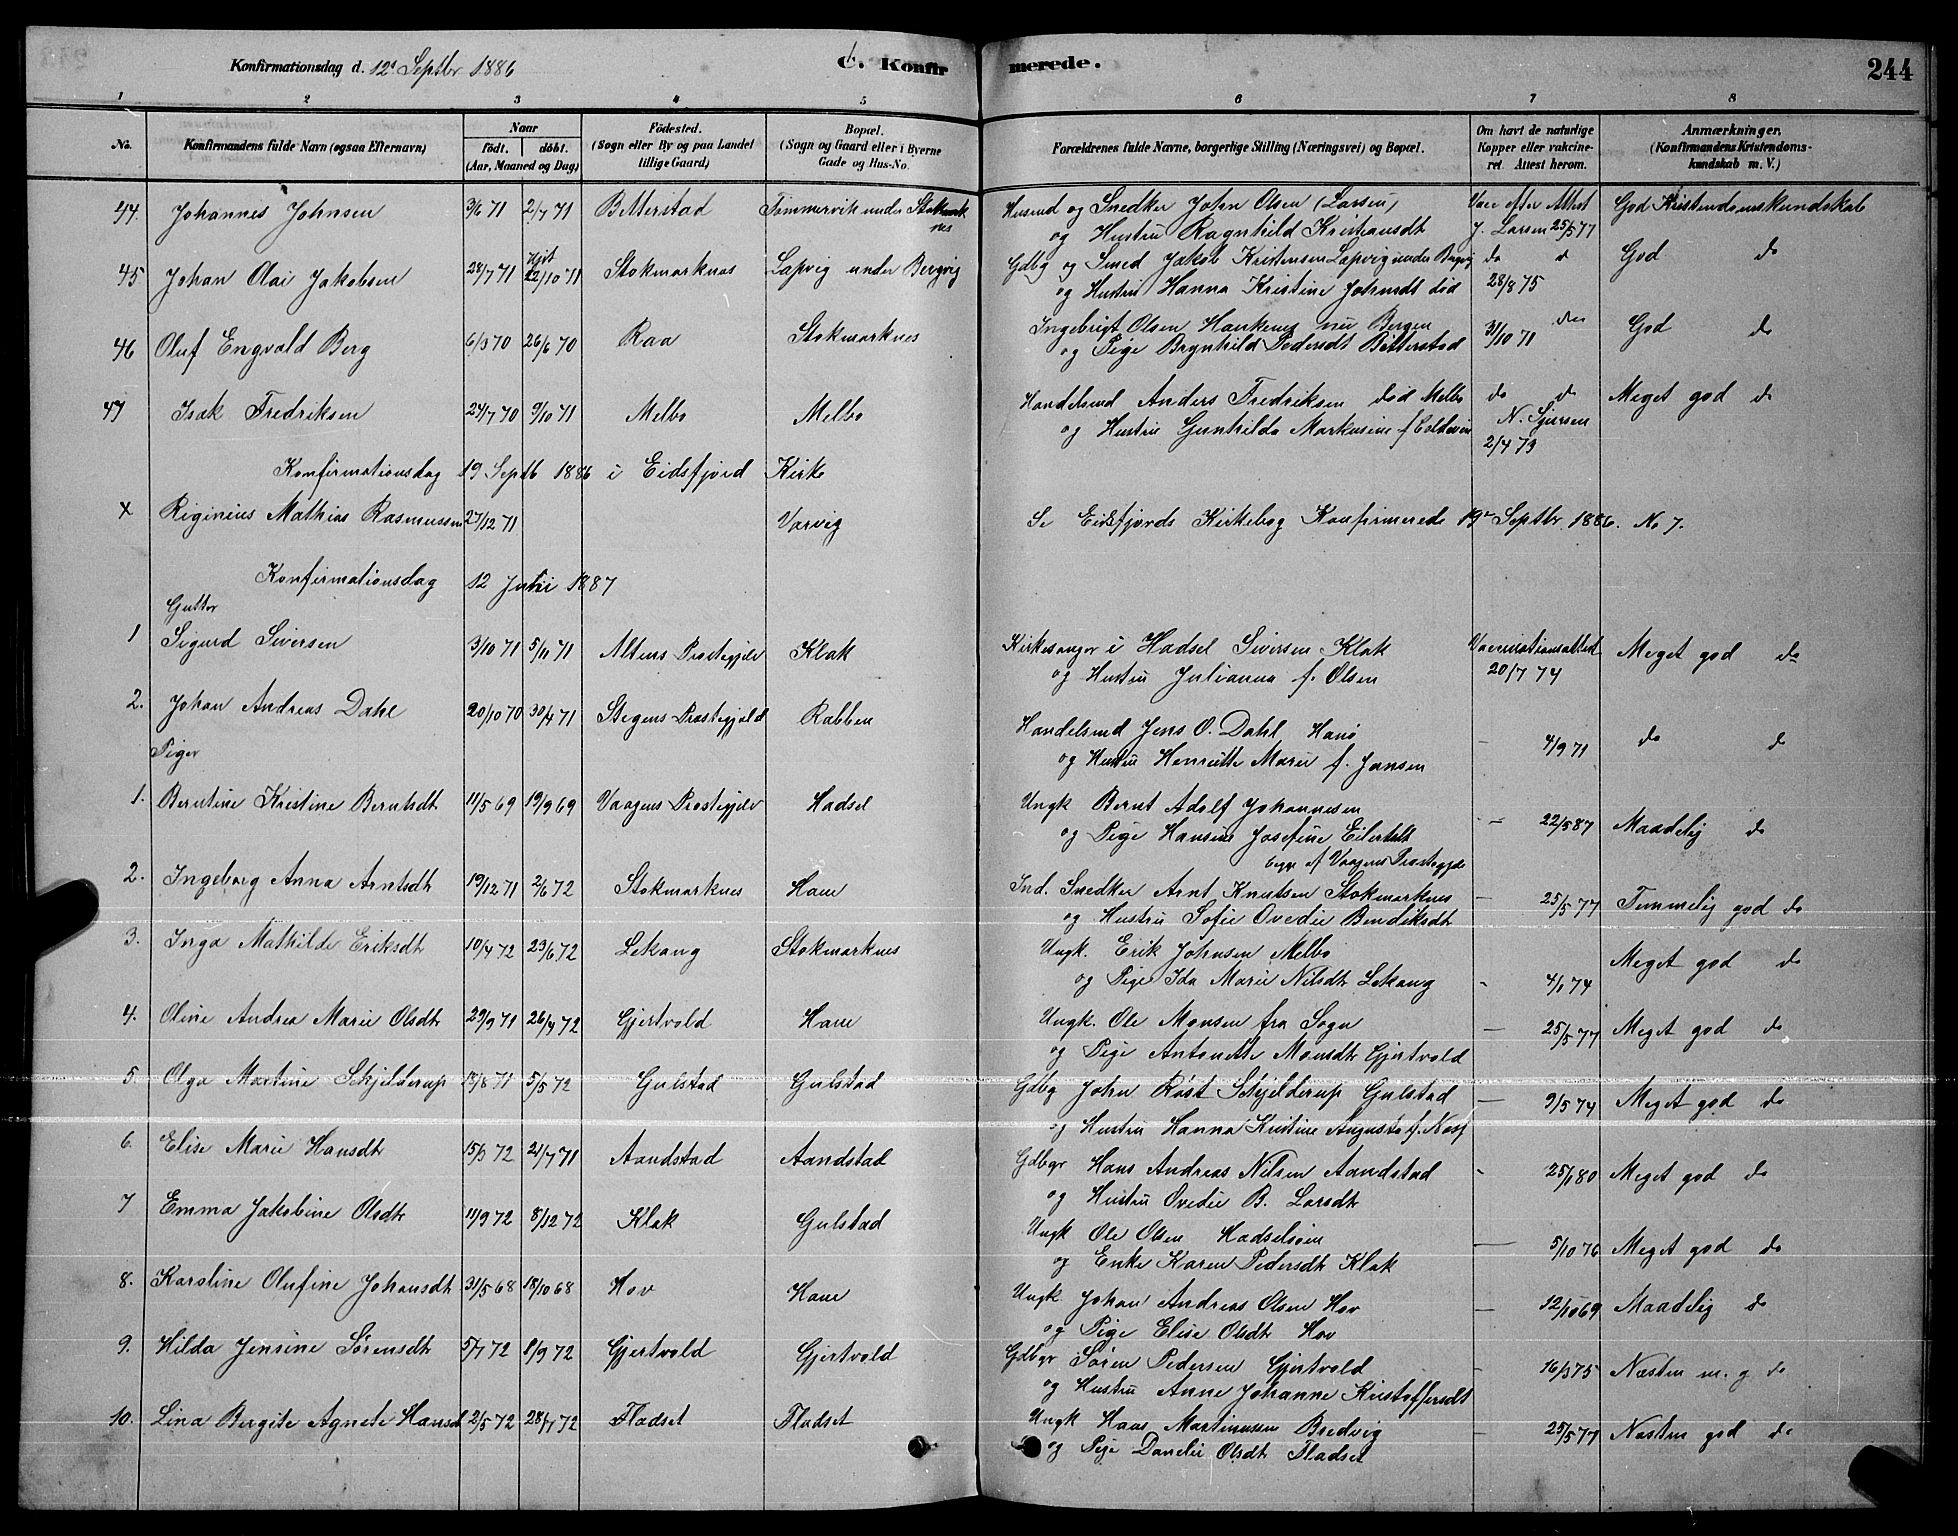 Konfirmationsdag d. 12' Septbr 1886 C. Konfirmerede. 244
1 2 3 4 5 6 7 8
No. Konfirmandens fulde Navn (ogsaa Efternavn) Naar födt. döbt. (Aar, Maaned og Dag) Födested. (Sogn eller By og paa Landet tillige Gaard) Bopæl. (Sogn og Gaard eller i Byerne Gade og Hus-No. Forældrenes fulde Navne, borgerlige Stilling (Næringsvei) og Bopæl. Om havt de naturlige Kopper eller vakcineret Attest herom. Anmærkninger. (Konfirmandens Kristendomskundskab m. V.)
44. Johannes Johnsen 3/6 71 2/7 71 Bitterstad Tømmervik under Stokmarknes Husmd og Snedker John Olsen (Larsen) Vacc efter Attest God Kristendomskundskab
og Hustru Ragnhild Kristiansdt J. Larsen 25/5 77
45 Johan Olai Jakobsen 28/7 71 Hjdt 22/10 71 Stokmarknes Lapvig under Bergvig Gdbg og Smed Jakob Kristensen Lapvig under Bergvig do d God do
og Hustru Hanna Kristine Johnsdt död 28/8 75
46 Oluf Engvald Berg 6/3 70 26/6 70 Raa Stokmarknes Ingebrigt Olsen Haukenes nu Bergen 31/10 71 do God do
og Pige Brynhild Pedersdt Bitterstad
47 Isak Fredriksen 24/7 70 9/10 71 Melbo Melbo Handelsmd Anders Fredriksen död Melbo do d Meget god do
og Hustru Gunhilda Markusine f Coldevin N. Sjursen 2/4 73
Konfirmationsdag 19 Septb 1886 i Eidsfjord Kirke
X Riginius Mathias Rasmussen 27/12 71 Varvig Se Eidsfjords Kirkebog Konfirmerede 19de Septbr. 1886. No 7.
Konfirmationsdag 12 Juni 1887
Gutter
1 Sigurd Siversen 3/10 71 5/11 71 Altens Prestegjeld Klak Kirkesanger i Hadsel Siversen Klak Vaccinationsattest Meget god do
og Hustru Julianna f. Olsen 20/7 74
2. Johan Andreas Dahl 20/10 70 30/4 71 Stegens Prestegjeld Rabben Handelsmd Jens O. Dahl Hanö - 4/9 71 do do
og Hustru Henriette Marie f. Jansen
Piger
1. Berntine Kristine Berntsdt 11/5 69 19/9 69 Vaagens Prestegjeld Hadsel Ungk Bernt Adolf Johannesen - 22/5 87 Maadelig do
og Pige Hansine Josefine Eilertsdt
begge af Vaagens Prestegjeld
2. Ingeborg Anna Arntsdt 19/12 71 2/6 72 Stokmarknes Haue Ind. Snedker Arnt Knutsen Stokmarknes - 25/5 77 Temmelig god do
og Hustru Sofie Ovedie Bendiksdt
3. Inga Mathilde Eriksdt 10/4 72 23/6 72 Lekang Stokmarknes Ungk. Erik Johnsen Melbo Meget god do
og Pige Ida Marie Nilsdt Lekang - 4/1 74
4. Oline Andrea Marie Olsdt 29/9 71 26/4 72 Gjertvold Haue Ungk. Ole Monsen fra Sogn - 25/5 77 Meget god do
og Pige Antonette Monsdt Gjertvold
5. Olga Martine Schjelderup 13/8 71 5/5 72 Gulstad Gulstad Gdbg John Röst Schjelderup Gulstad - 9/5 74 Meget god do
og Hustru Hanna Kristine Augusta f. Næss
6. Elise Marie Hansdt 15/3 72 21/7 71 Aandstad Aandstad Gdbgr Hans Andreas Nilsen Aandstad - 25/1 80 Meget god do
og Hustru Ovedie B. Larsdt
7 Emma Jakobine Olsdt 11/9 72 8/12 72 Klak Gulstad Ungk Ole Olsen Hadselöen - 5/10 76 Meget god do
og Enke Karen Pedersdt Klak
8. Karoline Olufine Johansdt 31/5 68 18/10 68 Hov Haue Ungk Johan Andreas Olsen Hov - 12/10 69 Maadelig do
og Pige Elise Olsdt Hov
9. Hilda Jensine Sørensdt 5/7 72 8/9 72 Gjertvold Gjertvold Gdbgr Sören Pedersen Gjertvold - 16/3 75 Næsten m. g do
og Hustru Anne Johanne Kristoffersdt
10. Lina Bergite Agnete Hansdt 2/5 72 28/7 72 Fladset Fladset Ungk Hans Martinussen Bredvig - 25/5 77 Næsten god do
og Pige Danelie Olsdt Fladset